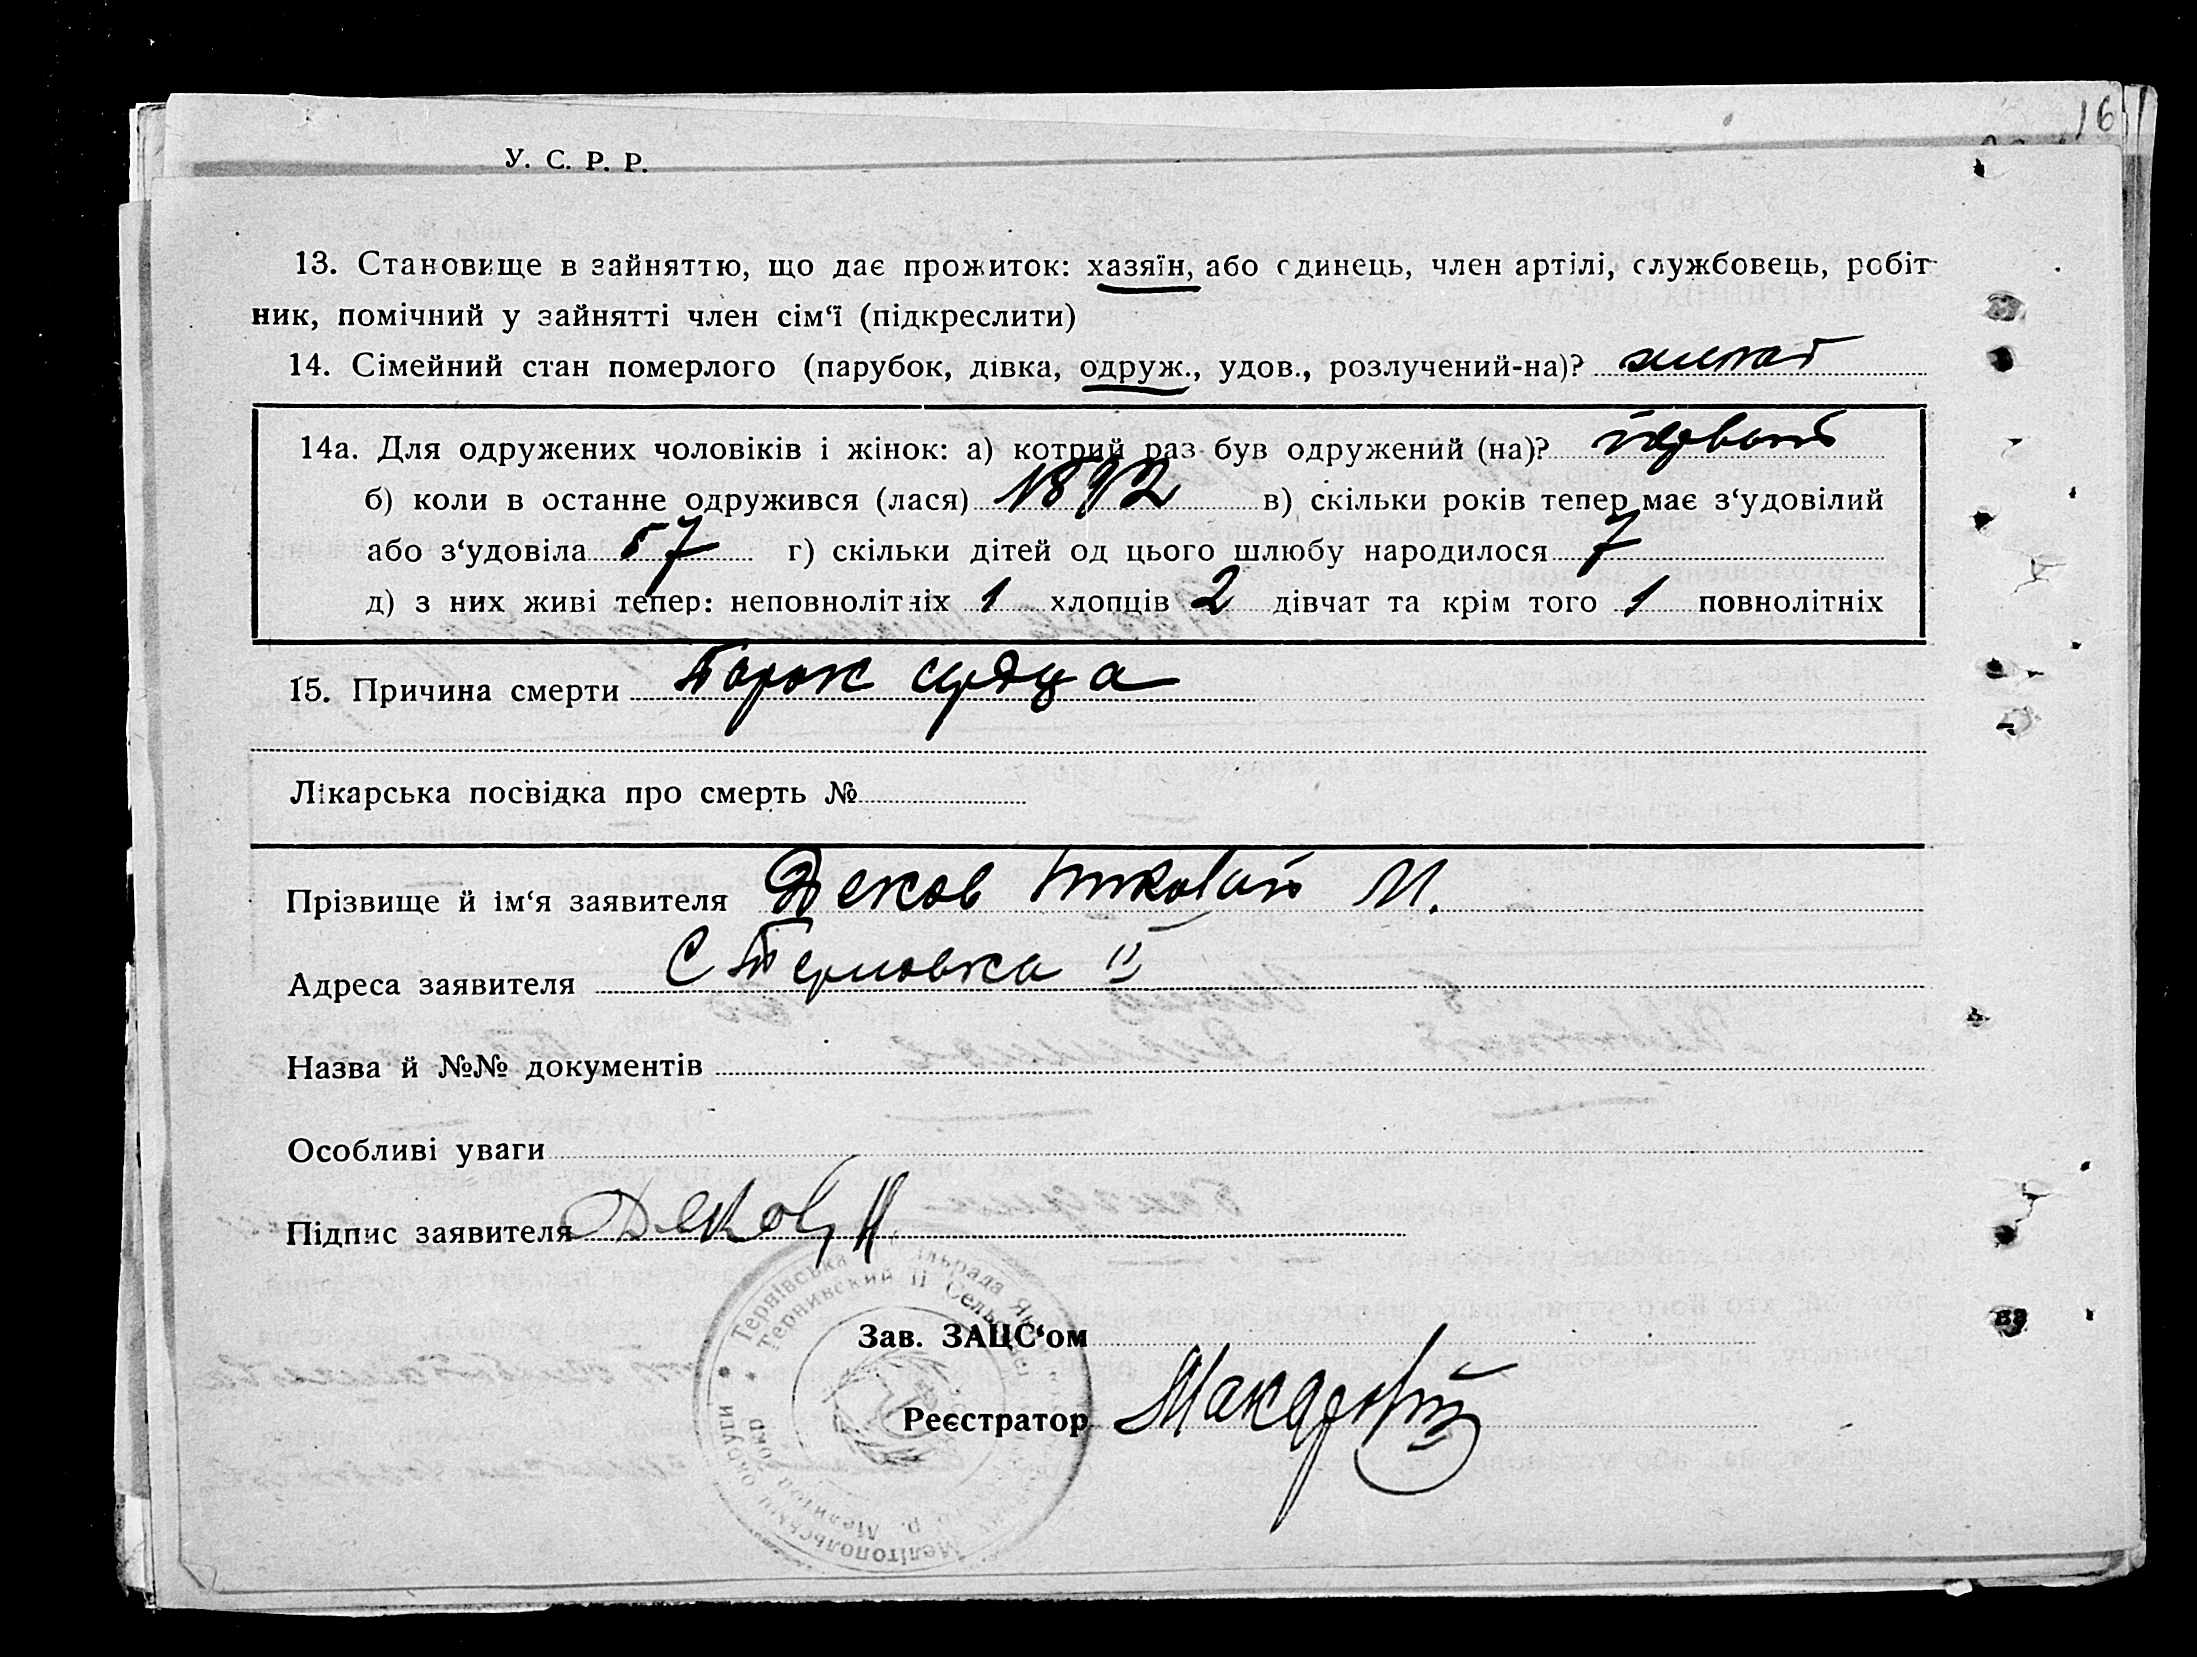 16
У. С. Р. Р.
13. Становище в зайняттю, що дає прожиток: хазяїн, або єдинець, член артілі, службовець, робіт-
ник, помічний у зайнятті член сім‘ї (підкреслити)
14. Сімейний стан померлого (парубок, дівка, одруж., удов., розлучений-на)? женат
14а. Для одружених чоловіків і жінок: а) котрий раз був одружений (на)? первый
б) коли в останне одружився (лася) 1892 в) скільки років тепер має з‘удовілий
або з‘удовіла 57 г) скільки дітей од цього шлюбу народилося 7
д) з них живі тепер: неповнолітніх 1 хлопців 2 дівчат та крім того 1 повнолітніх
15. Причина смерти Порок сердца
Лікарська посвідка про смерть №
Прізвище й ім‘я заявителя Деков Николай И.
Адреса заявителя С Терновка II
Назва й №№ документів
Особливі уваги
Підпис заявителя Деков Н
Зав. ЗАЦС‘ом
Реєстратор